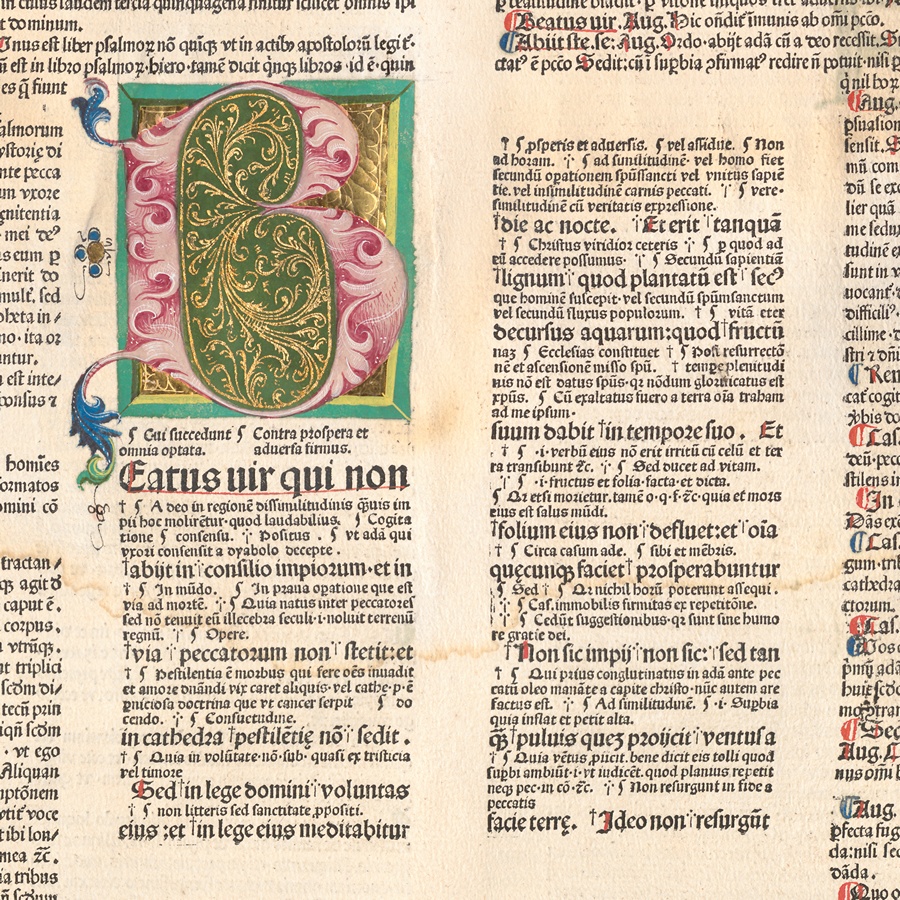 in cuius laudem tertia quinquagena finitur scilicet omnis spi
t dominum.
Inus est liber psalmoꝝ nō quīqꝫ vt in actibꝰ apostolorū legit᷑·
ū est in libro psalmoꝝ·hiero·tamē dicit qīnqꝫ libros·id ē·quin
es q̄ fiunt
almorum
ystorię di
nte pecca
um vxore
gnitentia
mei deꝰ
us eum ꝑ
inerit do
mult᷑, sed
pheta in/
no·ita or
untur.
a est inte/
ponsus ⁊
homīes
formatos
omini cō
tractan/
qꝫ agit ď
caput ē.
corpus.
vtrūqꝫ.
nt triplici
scďm di/
tecū prin
iqñ scďm
· vt ego
Aliquan
mptōnem
rtit᷑ voce
tibi lon/
mea ⁊c̄.
ia tribus
ñ scďm
¶ Gui succedunt ¶ Contra prospera et
omnia optata. aduersa firmus.
Eatus uir qui non
† ¶ A deo in regionē dissimilitudinis q̄uis im
pii hoc molirētur·quod laudabilius. ¶ Cogita
tione ¶ consensu. † Positus. ¶ vt adā qui
vxori consensit a dyabolo decepte.
†abijt in†consilio impiorum·et in
† ¶ In mūdo. ¶ In praua opatione que est
via ad mortē. † ¶ Quia natus inter peccatores
sed nō tenuit eū illecebra seculi·i·noluit terrenū
regnū. † ¶ Opere.
†via † peccatorum non † stetit:et
† ¶ Pestilentia ē morbus qui fere oēs inuadit
et amore dnāndi vix caret aliquis·vel cathe·p·ē
ꝑniciosa doctrina que vt cancer serpit ¶ do
cendo. † ¶ Consuetudine.
in cathedra †pestilētię nō † sedit.
† ¶ Quia in volūtate·nō·sub·quasi ex tristicia
vel timore
Sed in lege domini†voluntas
† ¶ non litteris sed sanctitate ꝓpositi.
eius:et †in lege eius meditabitur
Beatus uir. Aug. Hic ondit᷑ īmunis ab omī pcc̄o.
Abijt ste. se: Aug. Ordo·abijt adā cū a deo recessit.
ctat᷑ ē pcc̄o Sedit:cū ī suꝑbia ꝯfirmat᷑ redire ñ potuit·nisi ꝑ
† ¶ ꝓsperis et aduersis. ¶ vel assidue. ¶ Non
ad horam. † ¶ ad similitudinē·vel homo fiet
secundū opationem spūssancti vel vnitus sapiē
tie. vel insimilitudinē carnis peccati. † ¶ vere·
similitudinē cū veritatis expressione.
†die ac nocte. †Et erit†tanquā
† ¶ Christus viridior ceteris † ¶ ꝑ quod ad
eū accedere possumus· † ¶ Secundū sapientiā
†lignum†quod plantatū est†secꝰ
que hominē suscepit·vel secundū spūmsanctum
vel secundū fluxus populorum. † ¶ vitā eter
decursus aquarum:quod†fructū
naꝫ ¶ Ecclesias constituet † ¶ Post resurrectō
nē et ascensionē misso spū. † temꝑe plenitudi
nis nō est datus spūs·qꝛ nōdum glorificatus est
xp̄us. ¶ Cū exaltatus fuero a terra oīa traham
ad me ipsum·
suum dabit †in tempore suo. Et
† ¶ ·i·verbū eius nō erit irritū cū celū et ter
ra transibunt ⁊c̄. ¶ Sed ducet ad vitam.
† ¶ ·i·fructus et folia·facta·et dicta.
¶ Qꝛ etsi morietur.tamē o·q·f·⁊c̄·quia et mors
eius est salus mūdi.
†folium eius non†defluet:et†oīa
† ¶ Circa casum ade. ¶ sibi et mēbris.
quęcunqꝫ faciet†prosperabuntur
¶ Sed † ¶ Qꝛ nichil horū poterunt assequi.
¶ Cas. immobilis firmitas ex repetitōne.
† ¶ Cedūt suggestionibus·qꝛ sunt sine humo
re gratie dei.
†Non sic impij†non sic:†sed tan
† ¶ Qui prius conglutinatus in adā ante pec
catū oleo manāte a capite christo·nūc autem are
factus est. † ¶ Ad similitudinē. ¶ ·i·Suꝑbia
quia inflat et petit alta.
qꝫ†puluis queꝫ proijcit†ventus a
† ¶ Quia vētus ꝓiicit. bene dicit eis tolli quod
suꝑbi ambiūt·i·vt iudicēt. quod planius repetit
neqꝫ pec·in cō·⁊c̄. † ¶ Non resurgunt in fide a
peccatis
facie terrę. †Ideo non†resurgūt
q̓ nil hor
Aug.
ꝑsuasion
sensit.
mū com
dñ se exc
lier quā
me seduc
tudinē e
sunt in v
uocant᷑·d
difficili
cillime·d
stri ⁊ dñi
Rem
cat᷑ cogit
Cas.
deū·pecc
stilens in
In
Das exc
Cas.
gum·trib
cathedra
ctorum.
Cas.
Aug.
nus omī
Aug.
ꝑfecta fug
da:nisi sec
dāda.
Quo o